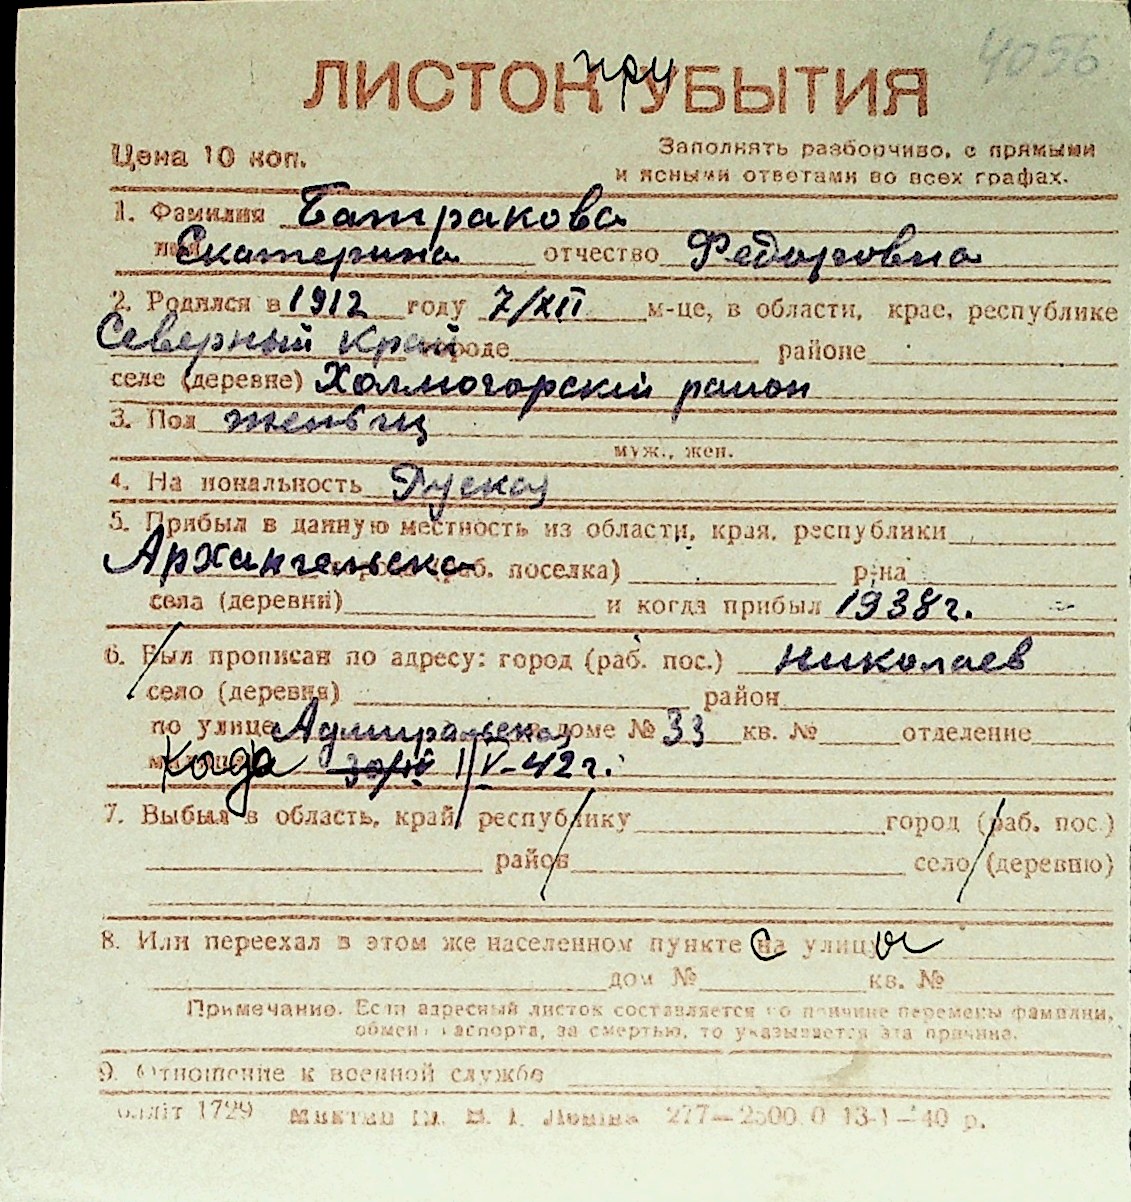 4056
при
ЛИСТОК УБЫТИЯ
Цена 10 коп.
Заполнять разборчиво, с прямыми
и ясными ответами во всех графах.
1. Фамилия Батракова
имя Екатерина отчество Федоровна
2. Родился в 1912 году 7/XII м-це, в области, крае, республике
Северный край городе районе
селе (деревне) Холмогорский район
3. Пол женщ
муж., жен.
4. На иональность Руская
5. Прибыл в данную местность из области, края, республики
Архангельска (раб. поселка) р-на
села (деревни) и когда прибыл 1938 г.
6. Был прописан по адресу: город (раб. пос.) Николаев
село (деревня) район
по улице Адмиральская в доме № 33 кв. № отделение
Когда 30/IV 1/V-42 г.
7. Выбыл в область, край, республику город (раб. пос.)
район село (деревню)
8. Или переехал в этом же населенном пункте с на улицу ы
дом № кв. №
Примечание. Если адресный листок составляется по причине перемены фамилии,
обмена паспорта, за смертью, то указывается эта причина.
9. Отношение к военной службе
олліт 1729 277—2500.0 13-1-40 р.